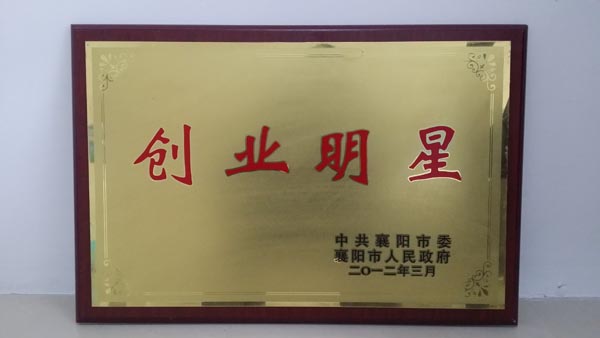 创业明星
中共襄阳市委
襄阳市人民政府
二〇一二年三月